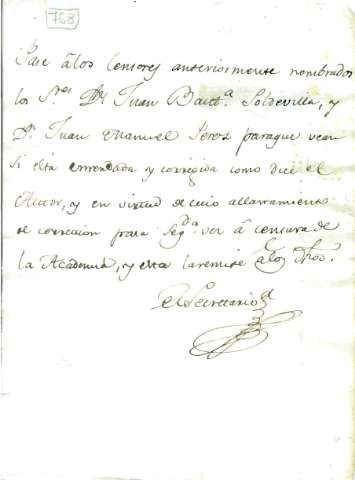 768
Pase â los Censores anteriormente nombrados
los S.res D.n Juan Baut.a Soldevilla, y
D.n Juan Manuel Perez paraque vean
si esta enmendada y corregida como dice el
Autor, y en virtud de cuio allanamiento
se correccion pasa Seg.da ver â censura de
la Academia, y esta laremite â los dhos.
El Secretario